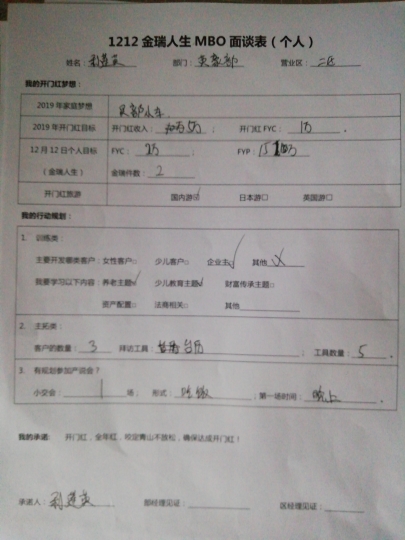 1212 金瑞人生 MBO 面谈表（个人）
姓名： 部门： 营业区： 二区
我的开门红梦想：
2019 年家庭梦想
2019 年开门红目标 开门红收入： ； 开门红 FYC： 1万 .
12 月 12 日个人目标 FYC： ； FYP：
（金瑞人生） 金瑞件数： 2
开门红旅游 国内游☑ 日本游□ 英国游□
我的行动规划：
1. 训练类：
主要开发哪类客户：女性客户□ 少儿客户□ 企业主✓ 其他
我要学习以下内容：养老主题☑ 少儿教育主题☑ 财富传承主题□
资产配置□ 法商相关□ 其他
2. 主拓类：
客户的数量： 3 拜访工具： 台历 ； 工具数量： 5 .
3. 有规划参加产说会？
小交会： 1 场； 形式： ；第一场时间： 晚上 .
我的承诺： 开门红，全年红，咬定青山不放松，确保达成开门红！
承诺人： 部经理见证： 区经理见证：